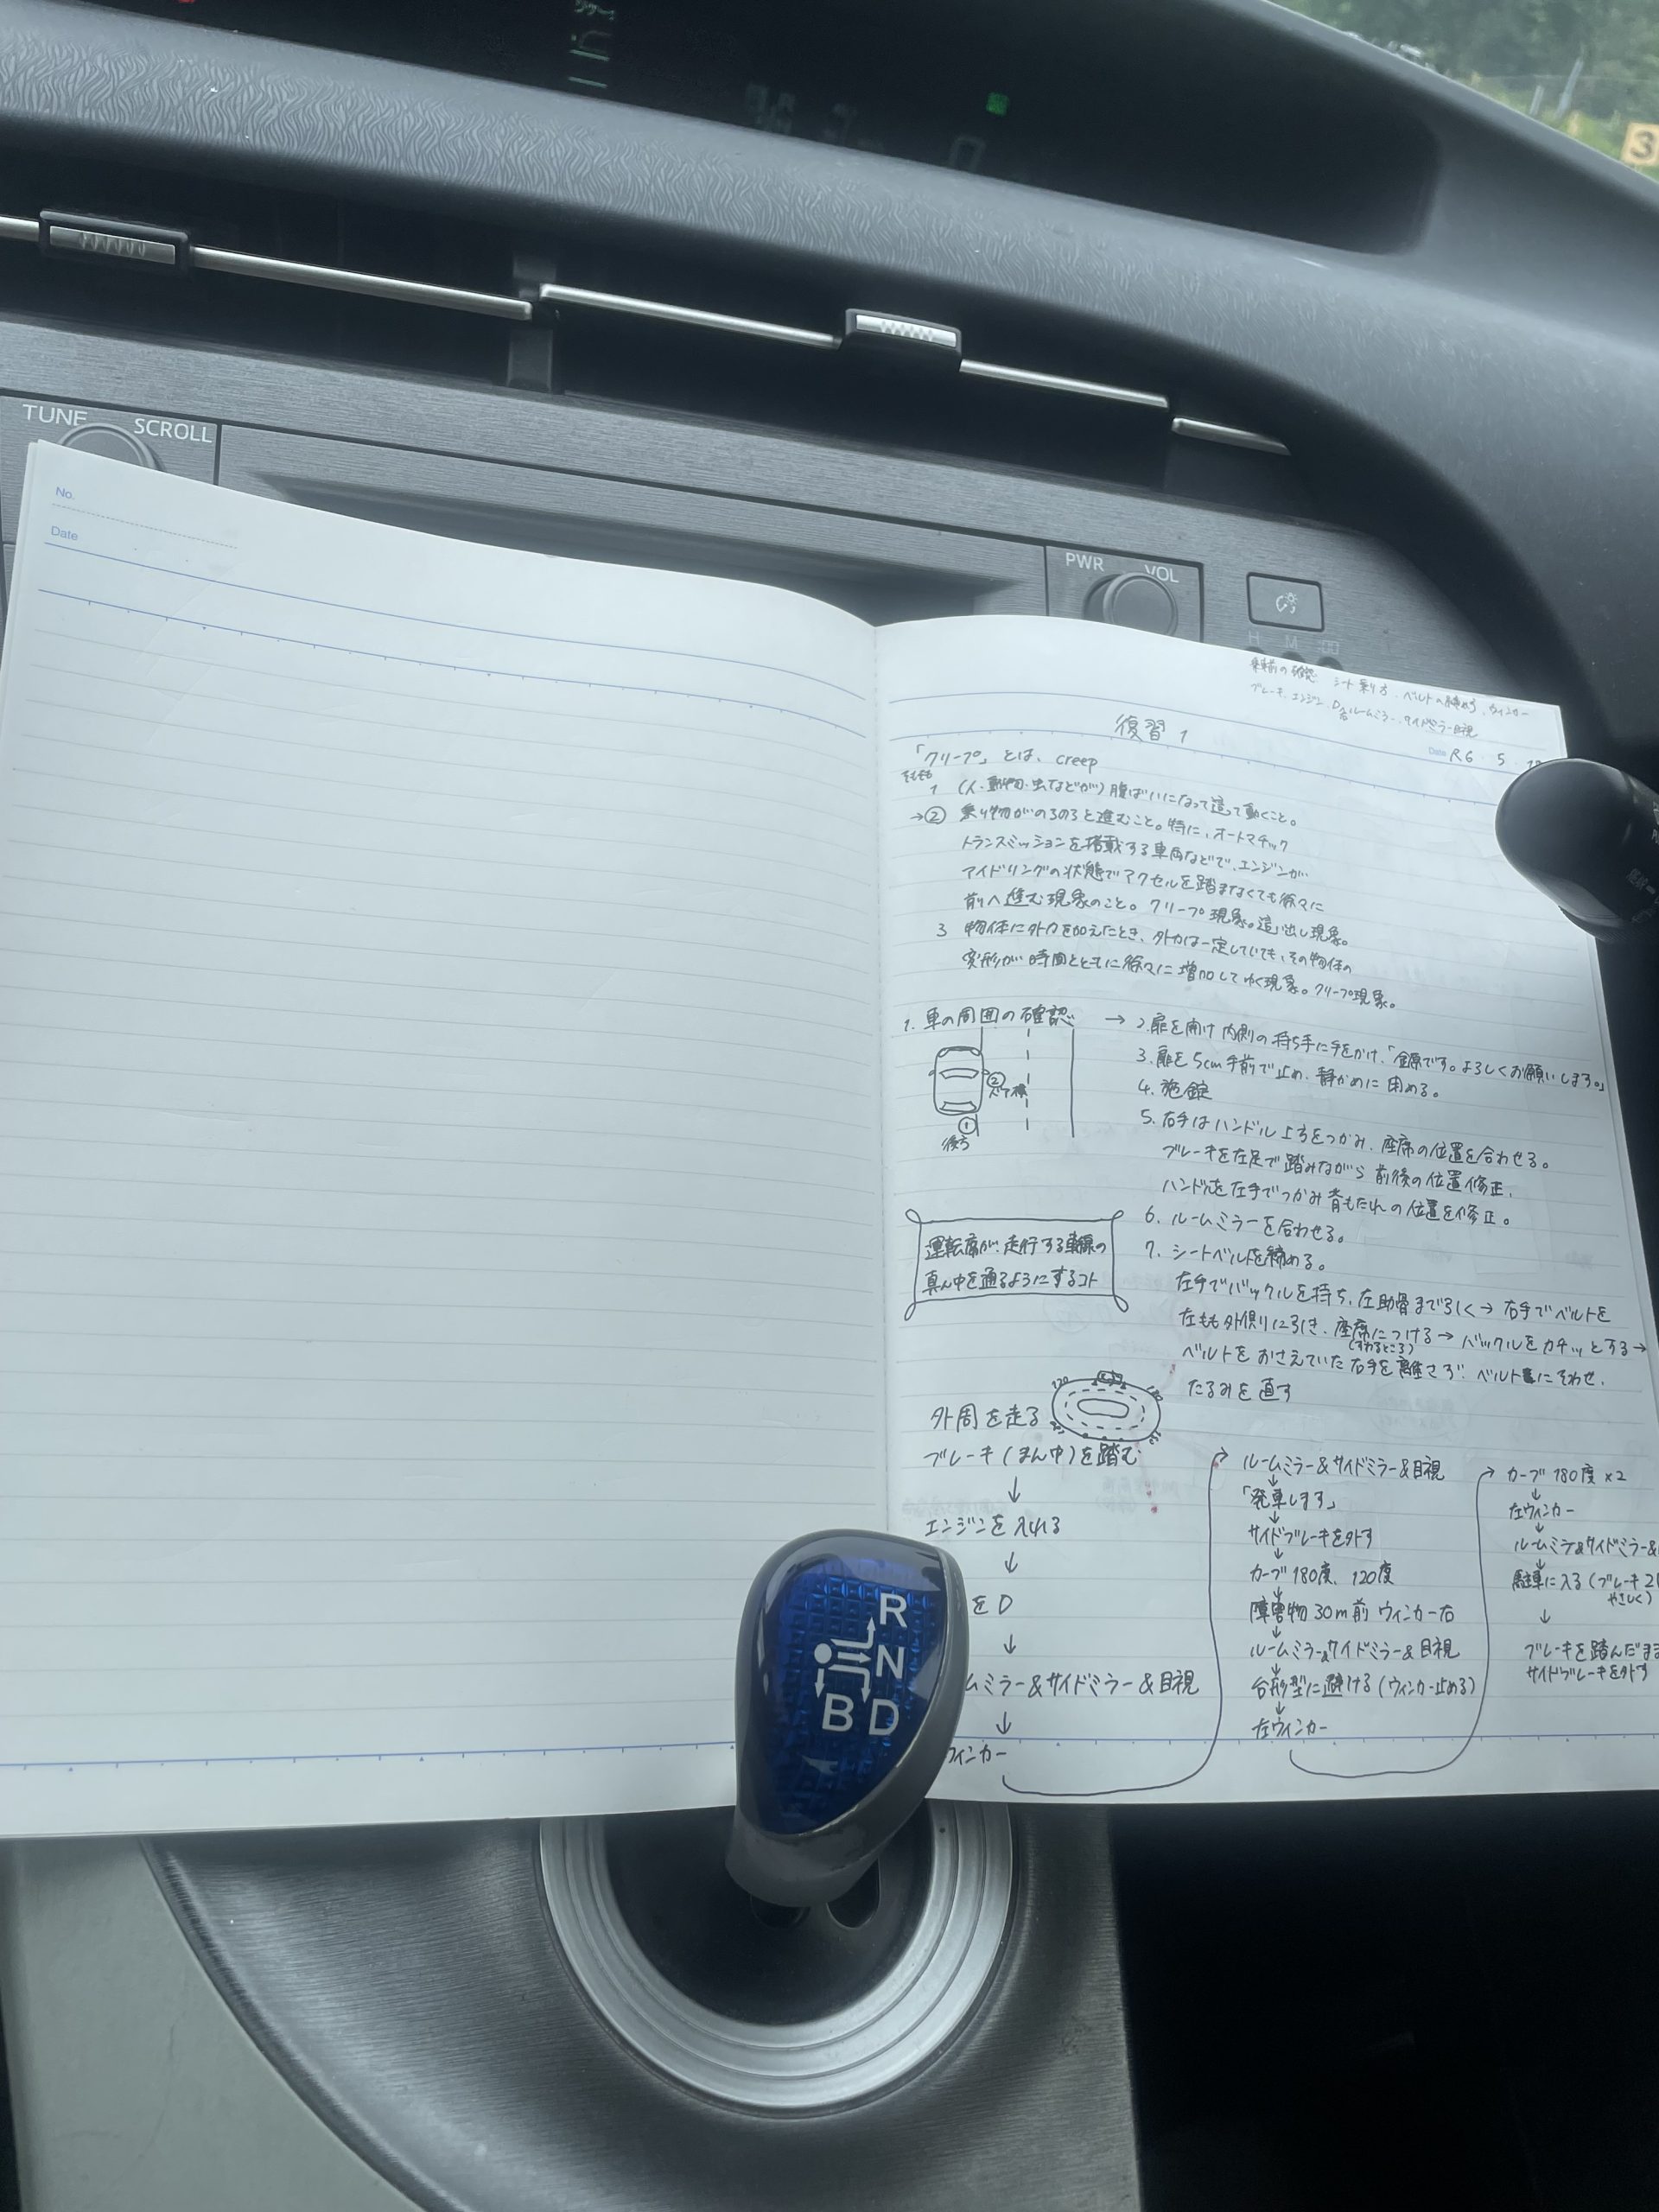 TUNE
SCROLL
PWR
VOL
H M :00
3
No.
Date
乗車前の確認 シート乗り方、ベルトの締め方、ウィンカー
ブレーキ、エンジン、D、ルームミラー、サイドミラー目視
復習 1
Date R6 . 5 .
「クリープ」とは、creep
そもそも
1 (人・動物・虫などが)腹ばいになって這って動くこと。
→② 乗り物がのろのろと進むこと。特に、オートマチック
トランスミッションを搭載する車両などで、エンジンが
アイドリングの状態でアクセルを踏まなくても徐々に
前へ進む現象のこと。クリープ現象。這い出し現象。
3 物体に外力を加えたとき、外力は一定していても、その物体の
変形が時間とともに徐々に増加してゆく現象。クリープ現象。
1. 車の周囲の確認
②
ドア横
①
後ろ
→ 2. 扉を開け 内側の持ち手に手をかけ、「金原です。よろしくお願いします。」
3. 扉を5cm手前で止め、静かめに閉める。
4. 施錠
5. 右手はハンドル上部をつかみ、座席の位置を合わせる。
ブレーキを左足で踏みながら 前後の位置修正、
ハンドルを左手でつかみ 背もたれの位置を修正。
6. ルームミラーを合わせる。
7. シートベルトを締める。
左手でバックルを持ち、左肋骨まで引く→ 右手でベルトを
左もも外側に引き、座席につける→ バックルをカチッとする→
(すわるところ)
ベルトをおさえていた右手を離さず、ベルトにそわせ、
たるみを直す
運転席が、走行する車線の
真ん中を通るようにするコト
外周を走る
120
ブレーキ(まん中)を踏む
↓
エンジンを入れる
↓
をD
↓
ムミラー&サイドミラー&目視
↓
ウィンカー
ルームミラー&サイドミラー&目視
↓
「発車します」
↓
サイドブレーキを外す
↓
カーブ 180度、120度
↓
障害物 30m前 ウィンカー右
↓
ルームミラー&サイドミラー&目視
↓
台形型に避ける(ウィンカー止める)
↓
左ウィンカー
カーブ 180度 ×2
↓
左ウィンカー
↓
ルームミラ&サイドミラー&
↓
駐車に入る(ブレーキ2
やさしく)
↓
ブレーキを踏んだまま
サイドブレーキを外す
R
N
B D